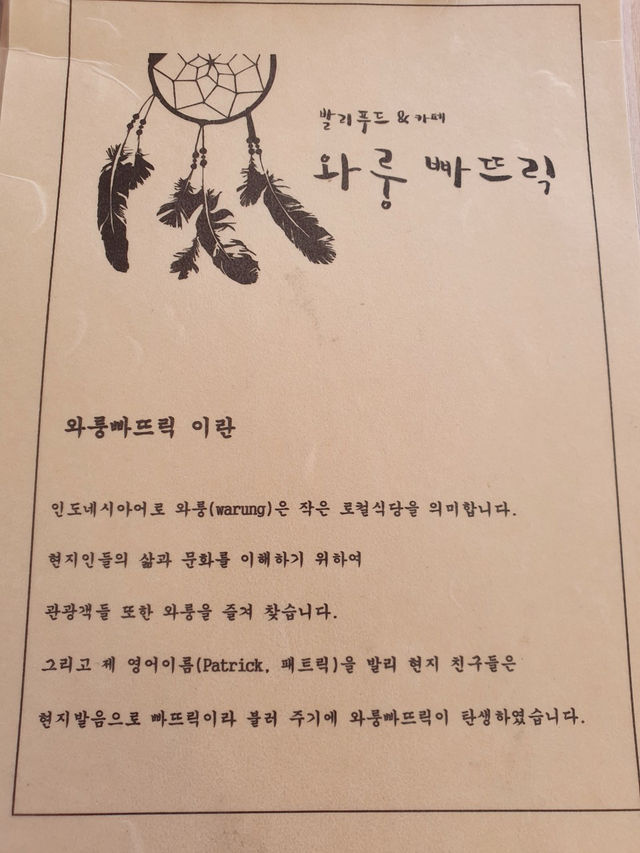 발리푸드 & 카페
와룽 빠뜨릭
와룽빠뜨릭 이란
인도네시아어로 와룽(warung)은 작은 로컬식당을 의미합니다.
현지인들의 삶과 문화를 이해하기 위하여
관광객들 또한 와룽을 즐겨 찾습니다.
그리고 제 영어이름(Patrick, 패트릭)을 발리 현지 친구들은
현지발음으로 빠뜨릭이라 불러 주기에 와룽빠뜨릭이 탄생하였습니다.